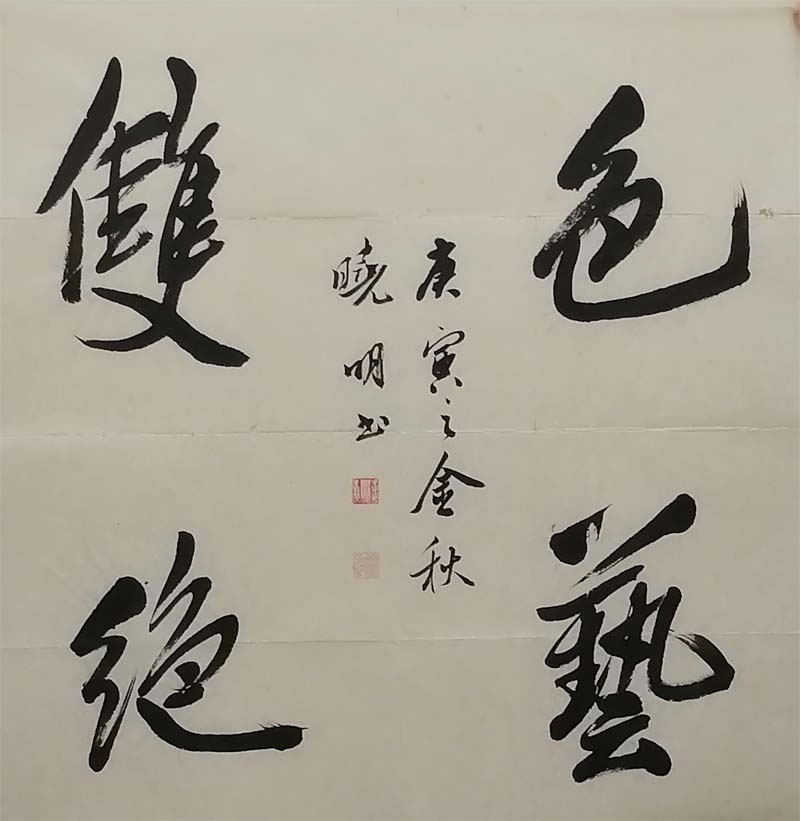 色藝
雙絕
庚寅之金秋
曉明书